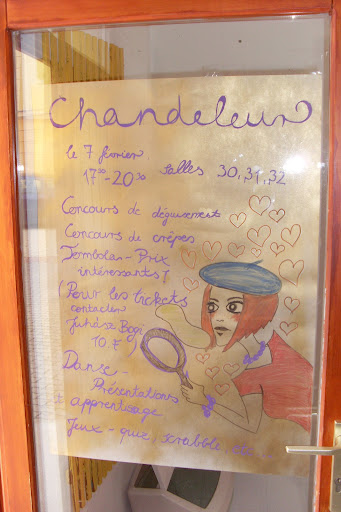 Chandeleur
le 7 février
17³⁰-20³⁰ salles 30, 31, 32
Concours de déguisement
Concours de crêpes
Tombolas - Prix
intéressants!
(Pour les tickets
contacter
Juhász Bogi
10 F)
Danse -
Présentations
+ apprentisage
Jeux - quiz, scrabble, etc.